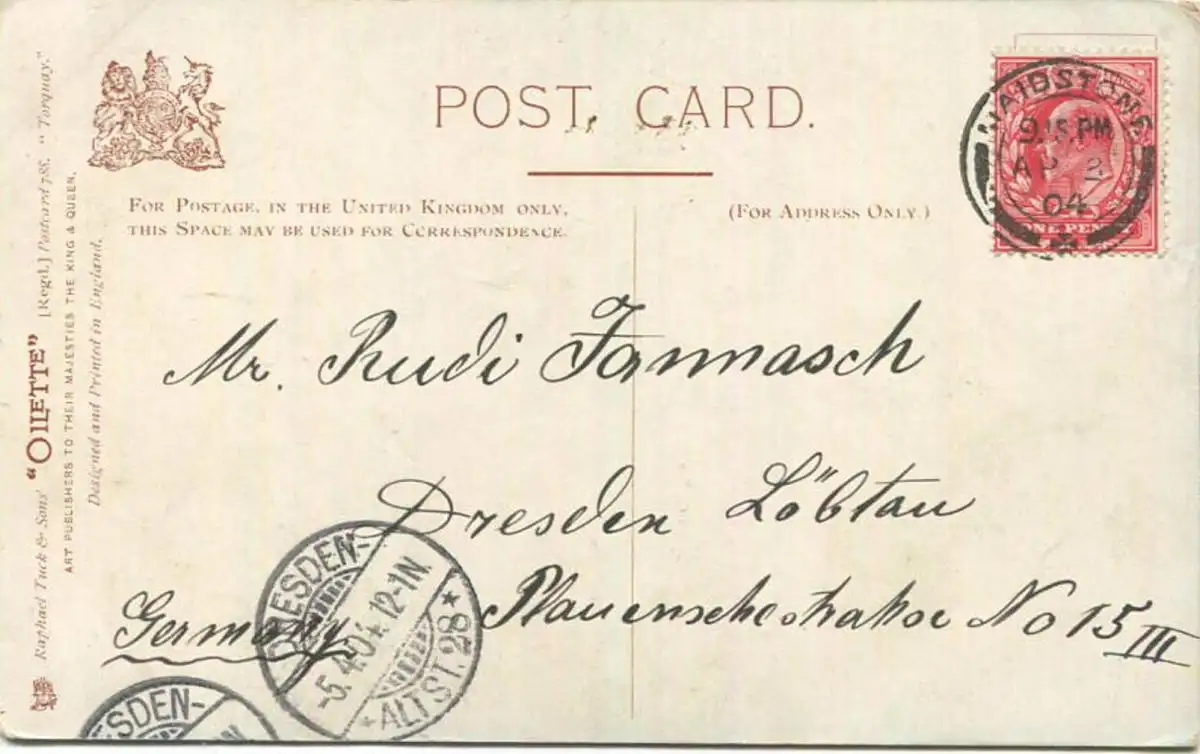 POST CARD.
FOR POSTAGE, IN THE UNITED KINGDOM ONLY,
THIS SPACE MAY BE USED FOR CORRESPONDENCE.
(FOR ADDRESS ONLY.)
MAIDSTONE
9.15.PM
AP 2
04
ONE PENNY
Mr. Rudi Jannasch
Dresden Löbtau
Plauenschestraße No 15 III
Germany
DRESDEN-
-5.4.04.12-1N.
* ALTST. 28 *
ESDEN-
N
Raphael Tuck & Sons' "OILETTE" [Regd.] Postcard 786. "Torquay."
ART PUBLISHERS TO THEIR MAJESTIES THE KING & QUEEN.
Designed and Printed in England.